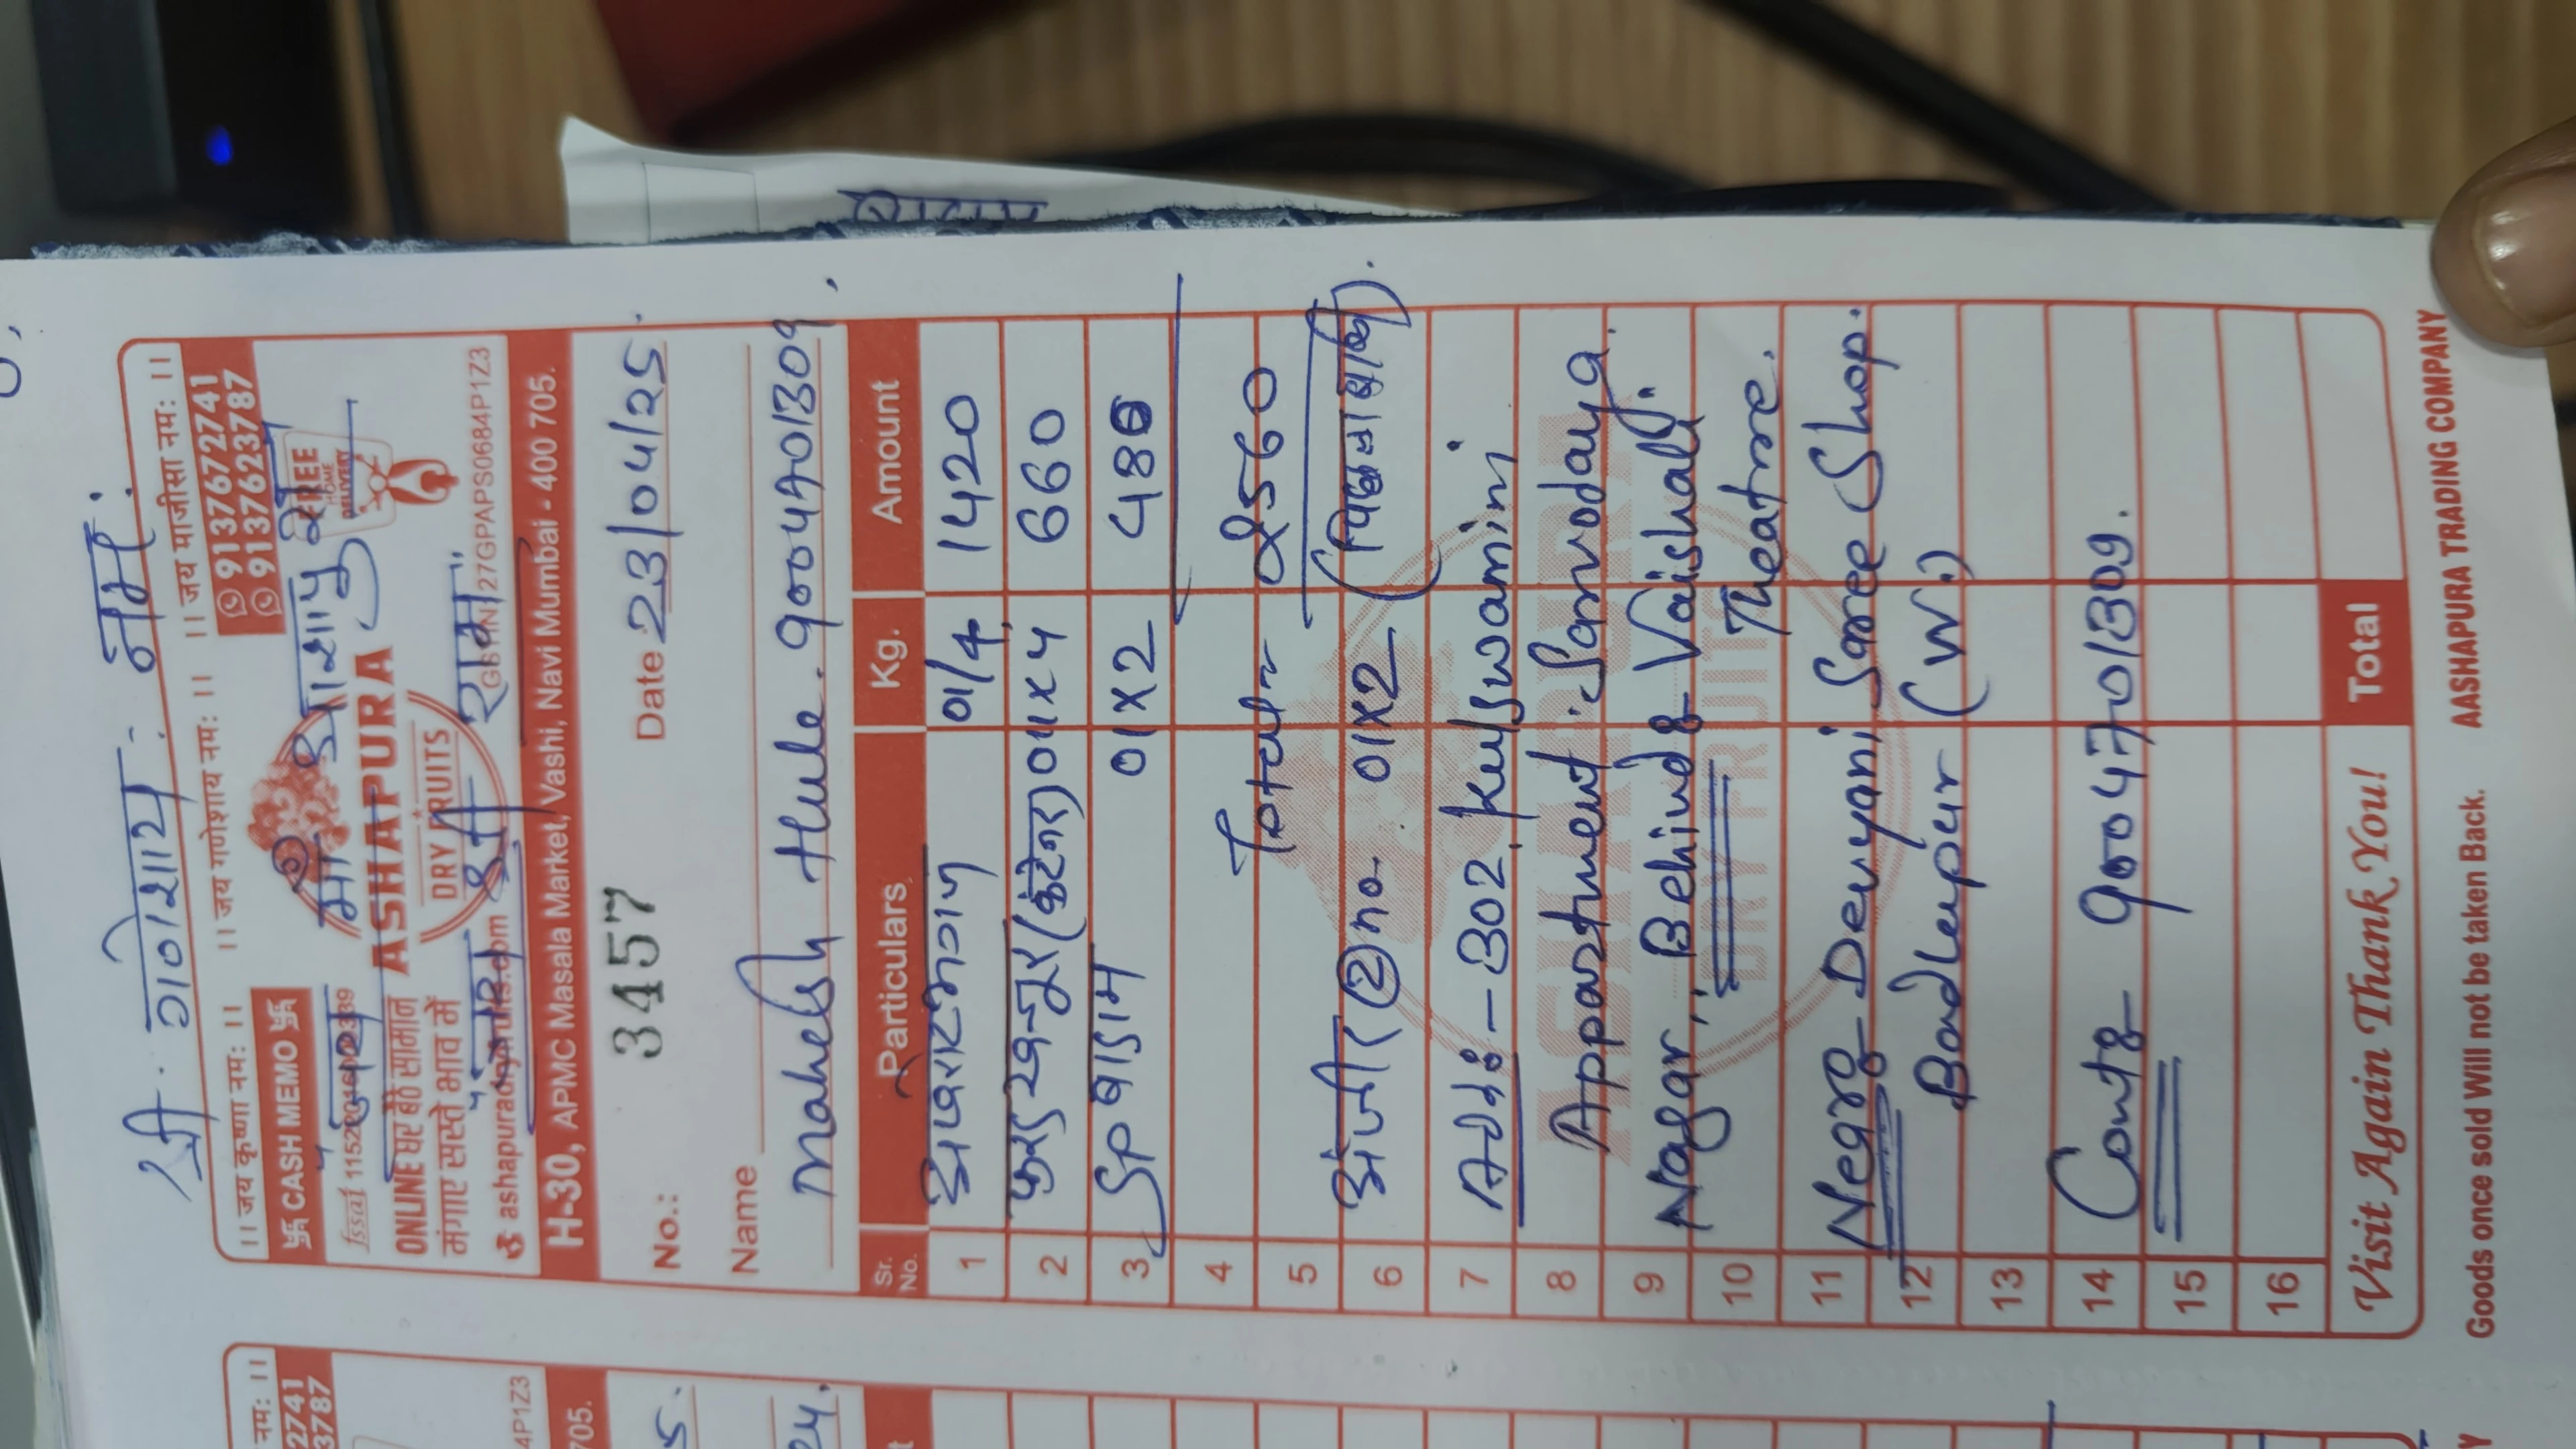 श्री. गणेशाय. नमः
।। जय कृष्णा नमः ।। ।। जय गणेशाय नमः ।। ।। जय माजीसा नमः ।।
卐 CASH MEMO 卐
9137672741
9137623787
माँ आशापुरा
fssai
ONLINE घर बैठे सामान
मंगाए सस्ते भाव में
ASHAPURA
DRY FRUITS
FREE
HOME
DELIVERY
श्री राम
GSTIN 27GPAPS0684P1Z3
H-30, APMC Masala Market, Vashi, Navi Mumbai - 400 705.
No.: 3457 Date 23/04/25.
Name
Mahesh Hule. 9004701309.
Sr. No. Particulars Kg. Amount
1 अखरोटमगज 01/4 1420
2 फरड खजूर (कंटेनर) 01x4 660
3 SP बादाम 01x2 480
4 Total 2560
5
6 अंजीर 2 no. 01x2
7 Add:- 302, kulswamini
8 Appartment. Sarvodaya
9 Nagar, Behind Vaishali
10 Theatre.
11 Near Devyani Saree Shop.
12 Badlapur (W.)
13
14 Cont 9004701309.
15
16
Visit Again Thank You! Total
Goods once sold Will not be taken Back. AASHAPURA TRADING COMPANY